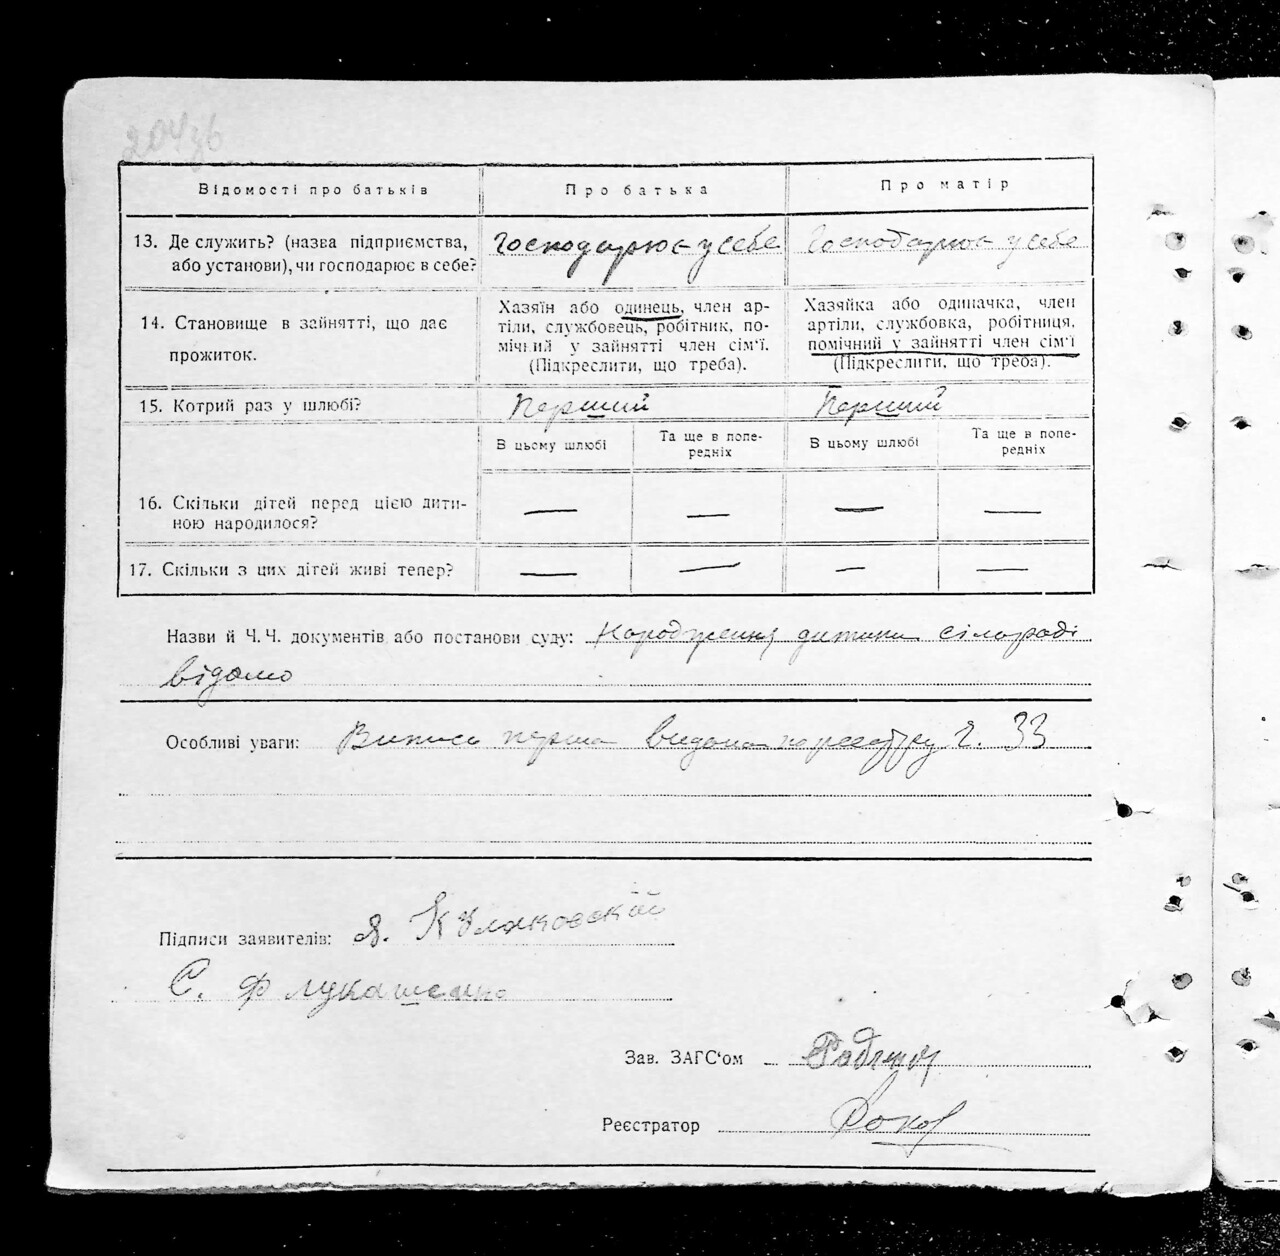 204зв
Відомості про батьків
Про батька
Про матір
13. Де служить? (назва підприємства, або установи), чи господарює в себе?
Господарює у себе
Господарює у себе
14. Становище в зайнятті, що дає прожиток.
Хазяїн або одинець, член ар-
тіли, службовець, робітник, по-
мічний у зайнятті член сім'ї.
(Підкреслити, що треба).
Хазяйка або одиначка, член
артіли, службовка, робітниця,
помічний у зайнятті член сім'ї
(Підкреслити, що треба).
15. Котрий раз у шлюбі?
Перший
Перший
В цьому шлюбі
Та ще в попе-
редніх
В цьому шлюбі
Та ще в попе-
редніх
16. Скільки дітей перед цією дити-
ною народилося?
— — — —
17. Скільки з цих дітей живі тепер?
— — — —
Назви й Ч.Ч. документів або постанови суду: Народження дитини сілораді
відомо
Особливі уваги: Випись перша видана по реєстру Ч. 33
Підписи заявителів: Я. Куликовскій
С. Ф Лукашенко
Зав. ЗАГС'ом
Реєстратор